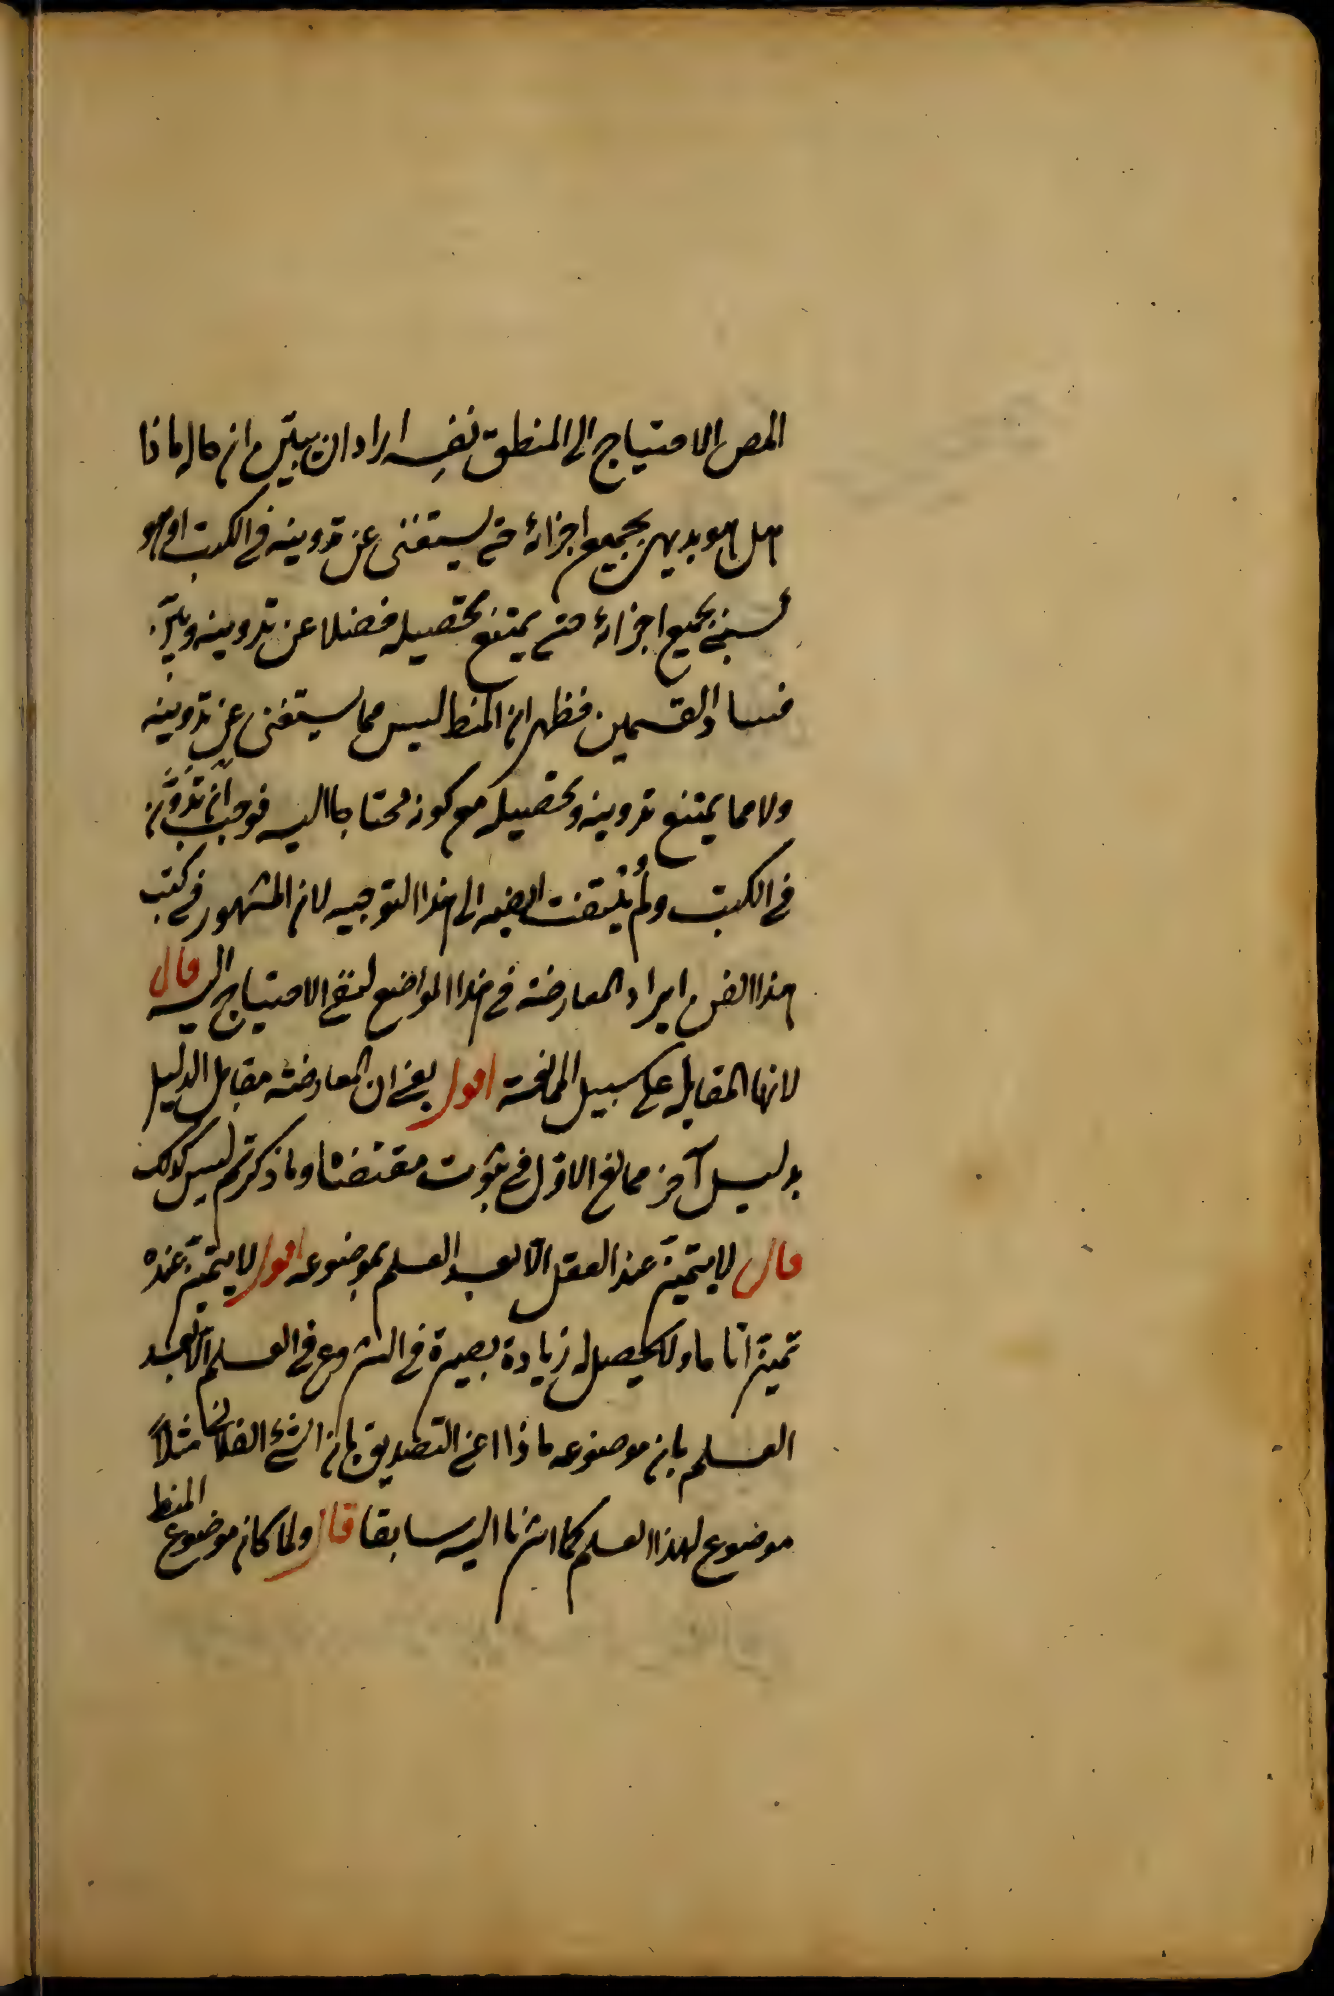 المص الاحتياج الى المنطق نفسه اراد ان يبيّن ان حاله ماذا
هل هو بديهى بجميع اجزائه حتى يستغنى عن تدوينه فى الكتب او هو
كسبى بجميع اجزائه حتى يمتنع تحصيله فضلا عن تدوينه
فساد القسمين فظهر ان المنط ليس مما يستغنى عن تدوينه
ولا مما يمتنع تدوينه وتحصيله مع كونه محتاجا اليه فوجب ان تدوّن
فى الكتب ولم يلتفت ايضه الى هذا التوجيه لان المشهور فى كتب
هذا الفن ايراد المعارضة فى هذا المواضع لنفى الاحتياج اليه قال
لانها المقابله على سبيل الممانعة اقول يعنى ان المعارضة مقابل الدليل
بدليل آخر ممانع الاوّل فى ثبوت مقتضاه وما ذكرتم ليس كذلك
قال لا يتميّز عند العقل الّا بعد العلم بموضوعه اقول لا يتميّز عنده
تميزا تاما ولا يحصل له زيادة بصيرة فى الشروع فى العلم الّا بعد
العلم بان موضوعه ماذا اعنى التصديق بان الشئ الفلانى مثلاً
موضوع لهذا العلم كما اشرنا اليه سابقا قال ولما كان موضوع المنط